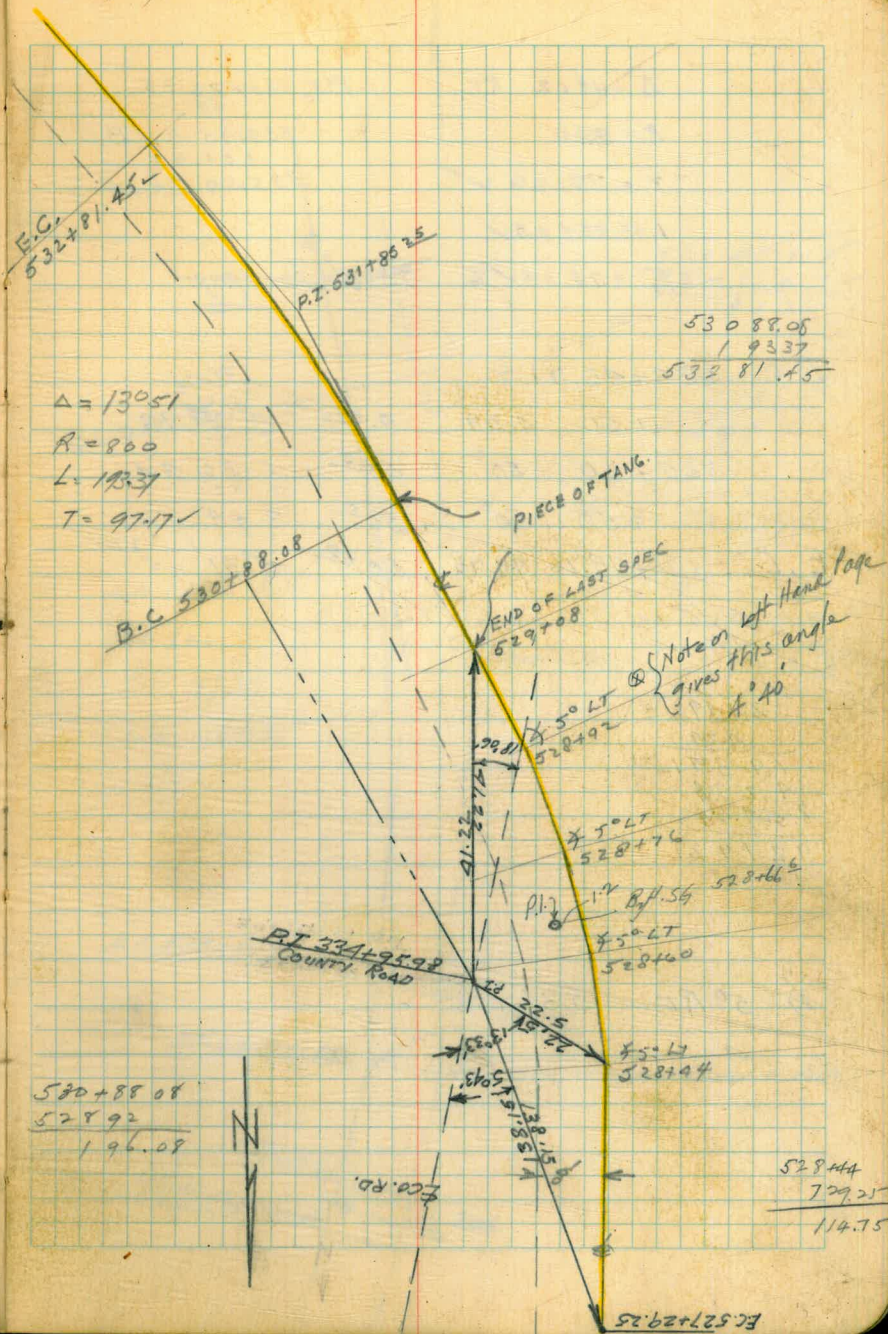 E.C.
532+81.45 ✓
P.I. 531+85 25
53 0 88.08
1 93 37
532 81.45
Δ = 13°51
R = 800
L = 193.37
T = 97.17 ✓
PIECE OF TANG.
B.C 530+88.08
END OF LAST SPEC
529+08
⊗ { Note on Left Hand Page
gives this angle
4°40'
∡ 5° LT
528+92
18°06'
151.22
∡ 5° LT
528+76
528+66 6
P.I.?
1.2
∡ 5° LT
528+60
P.I 334+95.98
COUNTY ROAD
PI
22.5
13°33'
∡ 5° LT
528+44
5°43'
138.15
530+88 08
528 92
196.08
N
CO. RD.
528+44
7 29.25
114.75
EC. 527+29.25